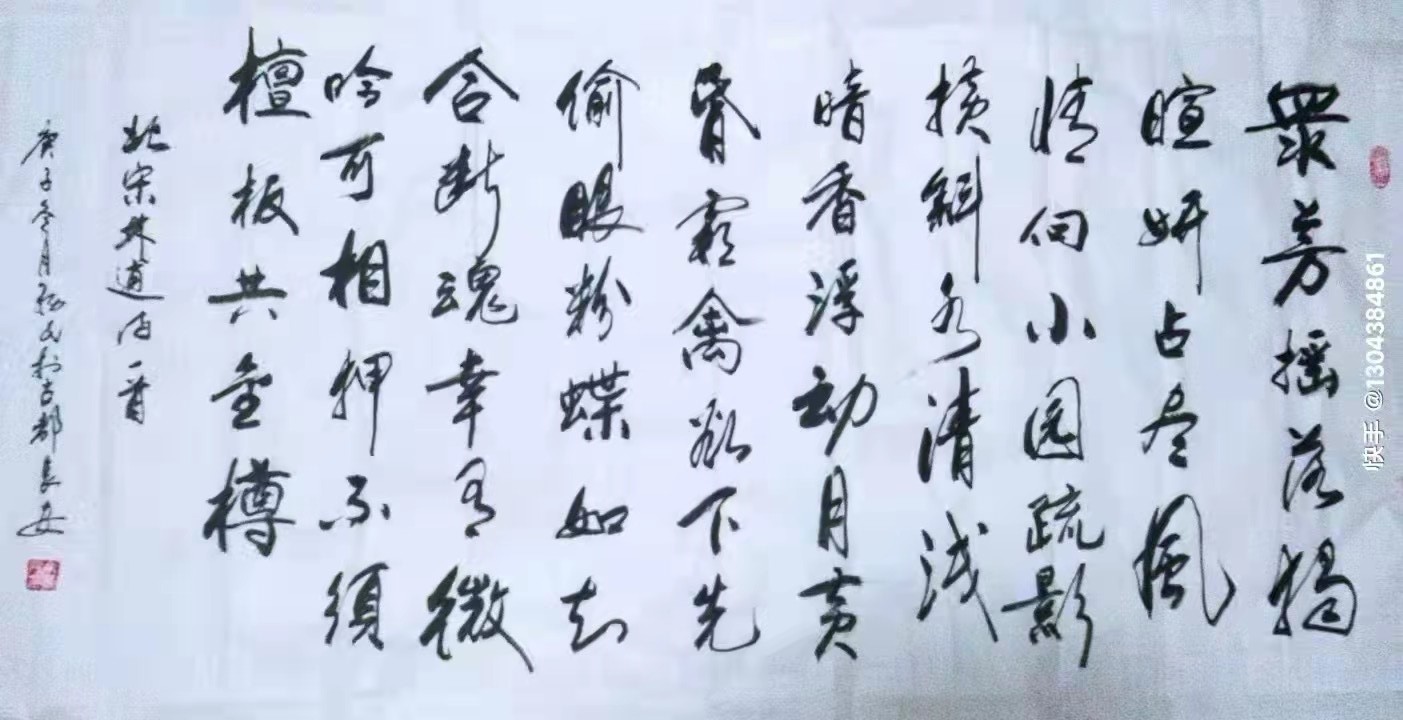 眾芳摇落獨
暄妍占尽風
情向小园疏影
横斜水清浅
暗香浮动月黄
昏霜禽欲下先
偷眼粉蝶如知
合断魂幸有微
吟可相狎不须
檀板共金樽
北宋林逋诗一首
庚子冬月民于古都长安
快手 @1304384861